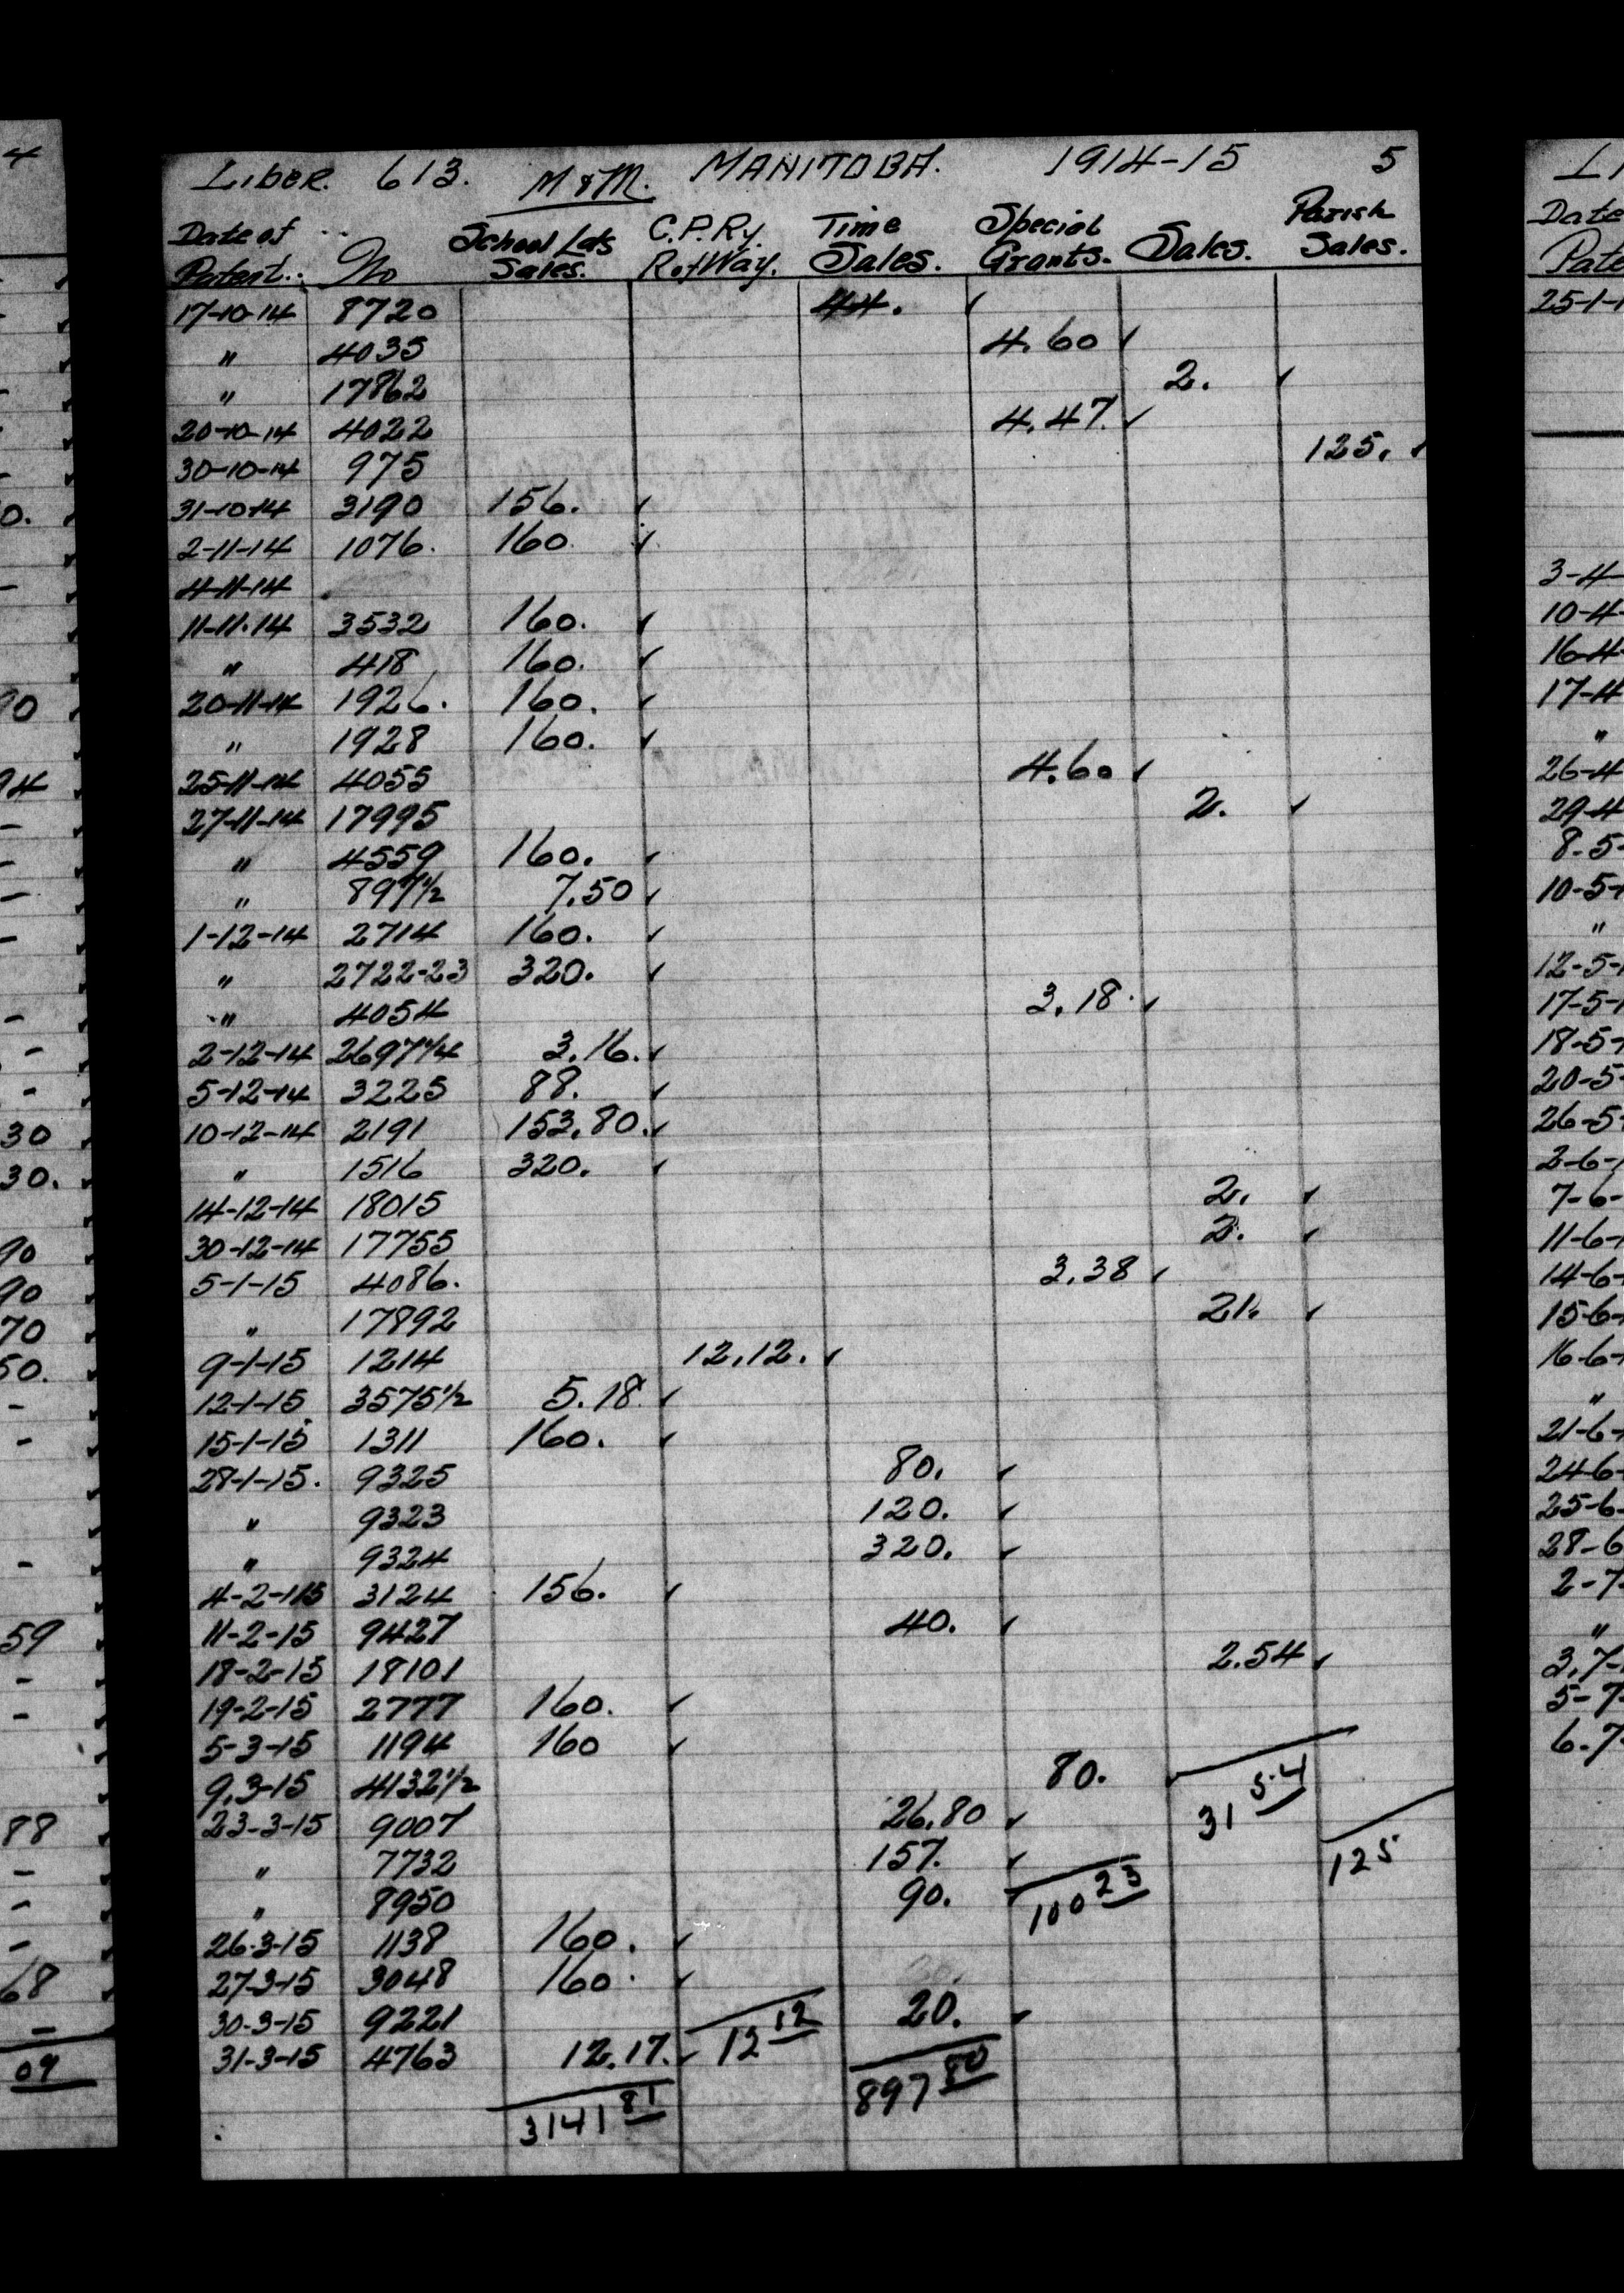 LIBER. 613. M & M. MANITOBA. 1914-15 5
Date of Patent. No School Lots Sales. C.P.Ry. R.ofWay. Time Sales. Special Grants. Sales. Parish Sales.
17-10-14 8720 44.
" 4035 4.60
" 17862 2.
20-10-14 4022 4.47.
30-10-14 975 125.
31-10-14 3190 156.
2-11-14 1076. 160
4-11-14
11-11-14 3532 160.
" 418 160.
20-11-14 1926. 160.
" 1928 160.
25-11-14 4055 4.60
27-11-14 17995 2.
" 4559 160.
" 897 1/2 7.50
1-12-14 2714 160.
" 2722-23 320.
" 4054 3.18.
2-12-14 2697 1/4 3.16.
5-12-14 3225 88.
10-12-14 2191 153.80.
" 1516 320.
14-12-14 18015 2.
30-12-14 17755 2.
5-1-15 4086. 3.38
" 17892 21.
9-1-15 1214 12.12.
12-1-15 3575 1/2 5.18.
15-1-15 1311 160.
28-1-15. 9325 80.
" 9323 120.
" 9324 320.
4-2-15 3124 156.
11-2-15 9427 40.
18-2-15 18101 2.54
19-2-15 2777 160.
5-3-15 1194 160
9.3-15 4132 1/2 80. 31 54
23-3-15 9007 26.80
" 7732 157. 125
" 8950 90. 100 23
26-3-15 1138 160.
27-3-15 3048 160.
30-3-15 9221 20.
31-3-15 4763 12.17. 12 12
3141 81 897 80